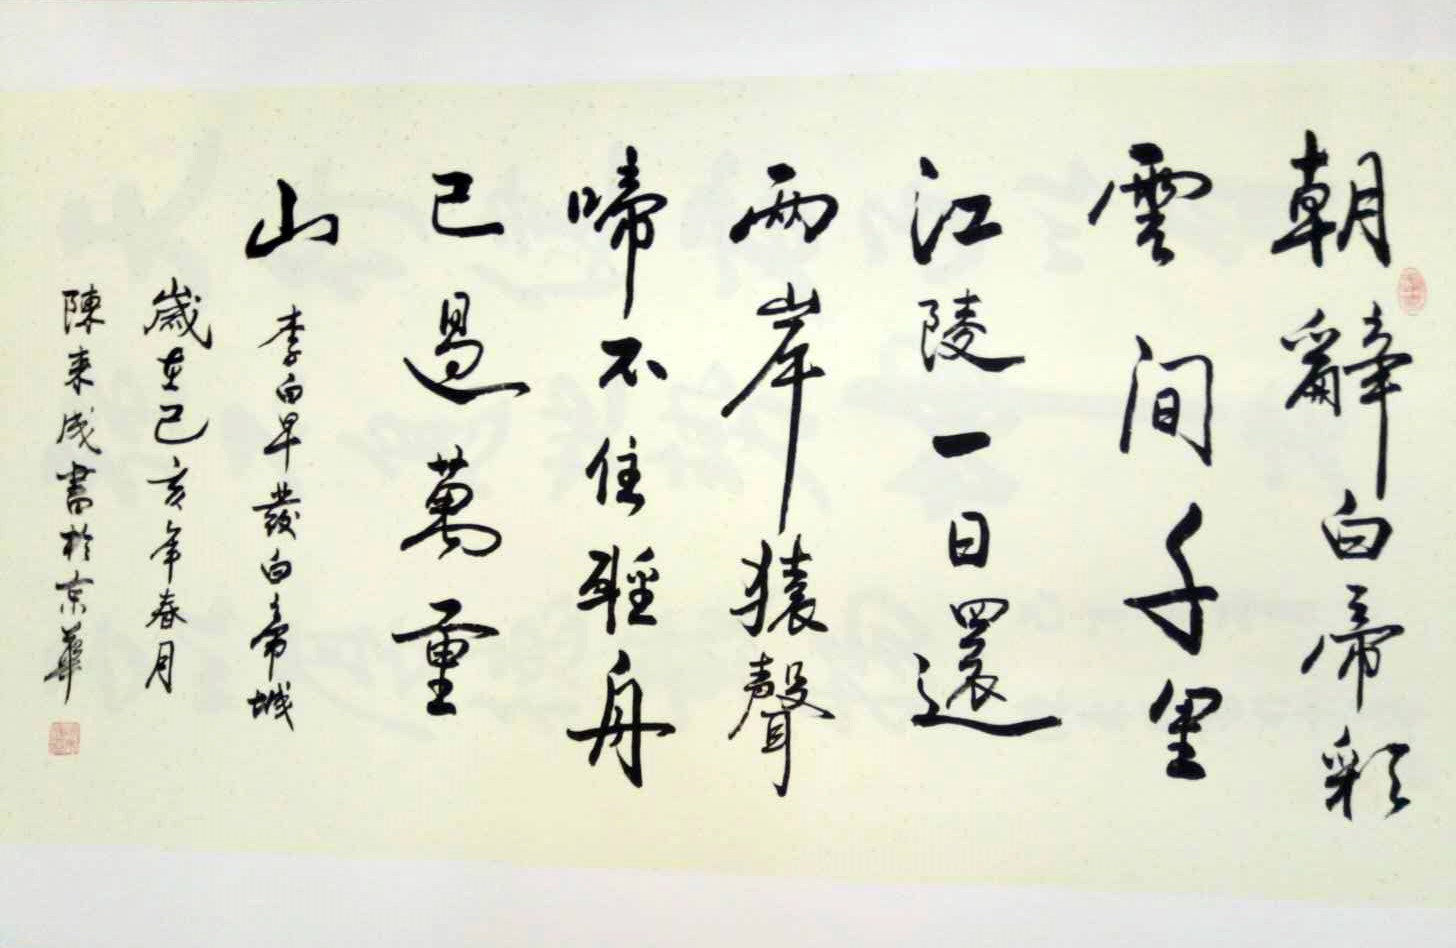 朝辭白帝彩
雲間千里
江陵一日還
兩岸猿聲
啼不住輕舟
已過萬重
山
李白早發白帝城
歲在己亥年春月
陳来成書於京華